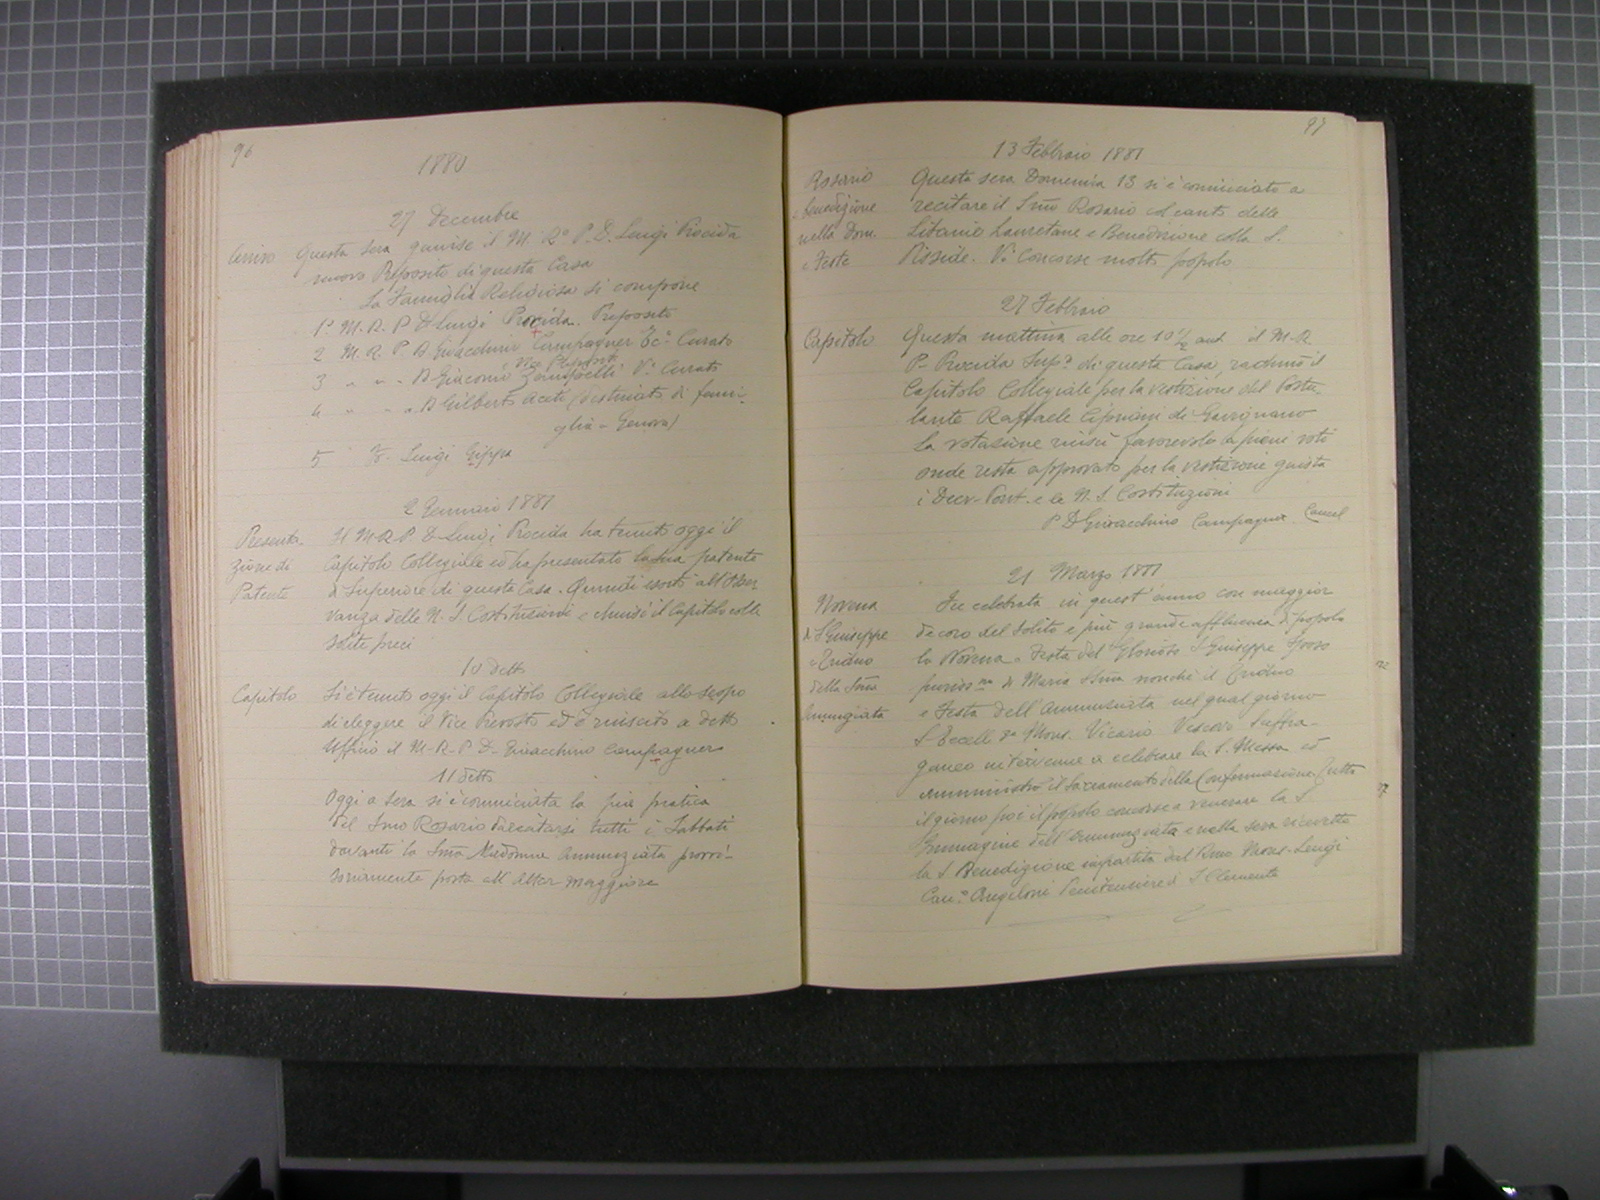 96
1880
27 Decembre
Arrivo Questa sera giunse il M. Rº P. D. Luigi Procida
nuovo Preposito di questa Casa
La Famiglia Religiosa si compone
1º M. R. P. D Luigi Procida. Preposito
2 M. R. P. D Gioacchino Campagner Ecº Curato
Vice Preposito
3 " " - D Giacomo Zambelli Vº Curato
4 " " " D Gilberto Aceti (destinato di fami-
glia a Genova)
5 " Fr. Luigi Gippa
2 Gennaio 1881
Presenta Il M R P D Luigi Procida ha tenuto oggi il
zione di Capitolo Collegiale ed ha presentato la sua patente
Patente di Superiore di questa Casa. Quindi esortò all'Osser
vanza delle N. S. Costituzioni e chiuse il Capitolo colle
solite preci
10 detto
Capitolo Si è tenuto oggi il Capitolo Collegiale allo scopo
di eleggere il Vice Prevosto ed è riuscito a detto
Uffizio il M-R-P D- Gioacchino Campagner
11 detto
Oggi a sera si è cominciata la pia pratica
del Smo Rosario da recitarsi tutti i Sabbati
davanti la Sma Madonna Annunziata provvi-
soriamente posta all'Altar Maggiore
97
13 Febbraio 1881
Rosario Questa sera Domenica 13 si è cominciato a
e benedizione recitare il Smo Rosario col canto delle
nelle Dom. Litanie Lauretane e Benedizione colla S.
e Feste Pisside. Vi concorse molto popolo
27 Febbraio
Capitolo Questa mattina alle ore 10 1/2 ant il M-R
P- Procida Supe di questa Casa, radunò il
Capitolo Collegiale per la vestizione del Postu-
lante Raffaele Cipriani di Gavignano
la votazione riuscì favorevole a pieni voti
onde resta approvato per la vestizione giusta
i Decr- Pont. e le N. S. Costituzioni
P D Gioacchino Campagner Cancel
21 Marzo 1881
Novena Fu celebrata in quest'anno con maggior
di S Giuseppe decoro del solito e più grande affluenza di popolo
e Triduo la Novena e Festa del Glorioso S Giuseppe Sposo
della Sma purissmo di Maria SSma nonchè il Triduo
Annunziata e Festa dell'Annunziata nel qual giorno
S- Eccell za Mons. Vicario Vescovo Suffra-
ganeo intervenne a celebrare la S. Messa ed
amministrò il Sacramento della Confermazione. Tutto
il giorno poi il popolo concorse a venerare la S.
Immagine dell'Annunziata e nella sera ricevette
la S Benedizione impartita dal Rmo Mons- Luigi
Canº Penitenziere di S Clemente